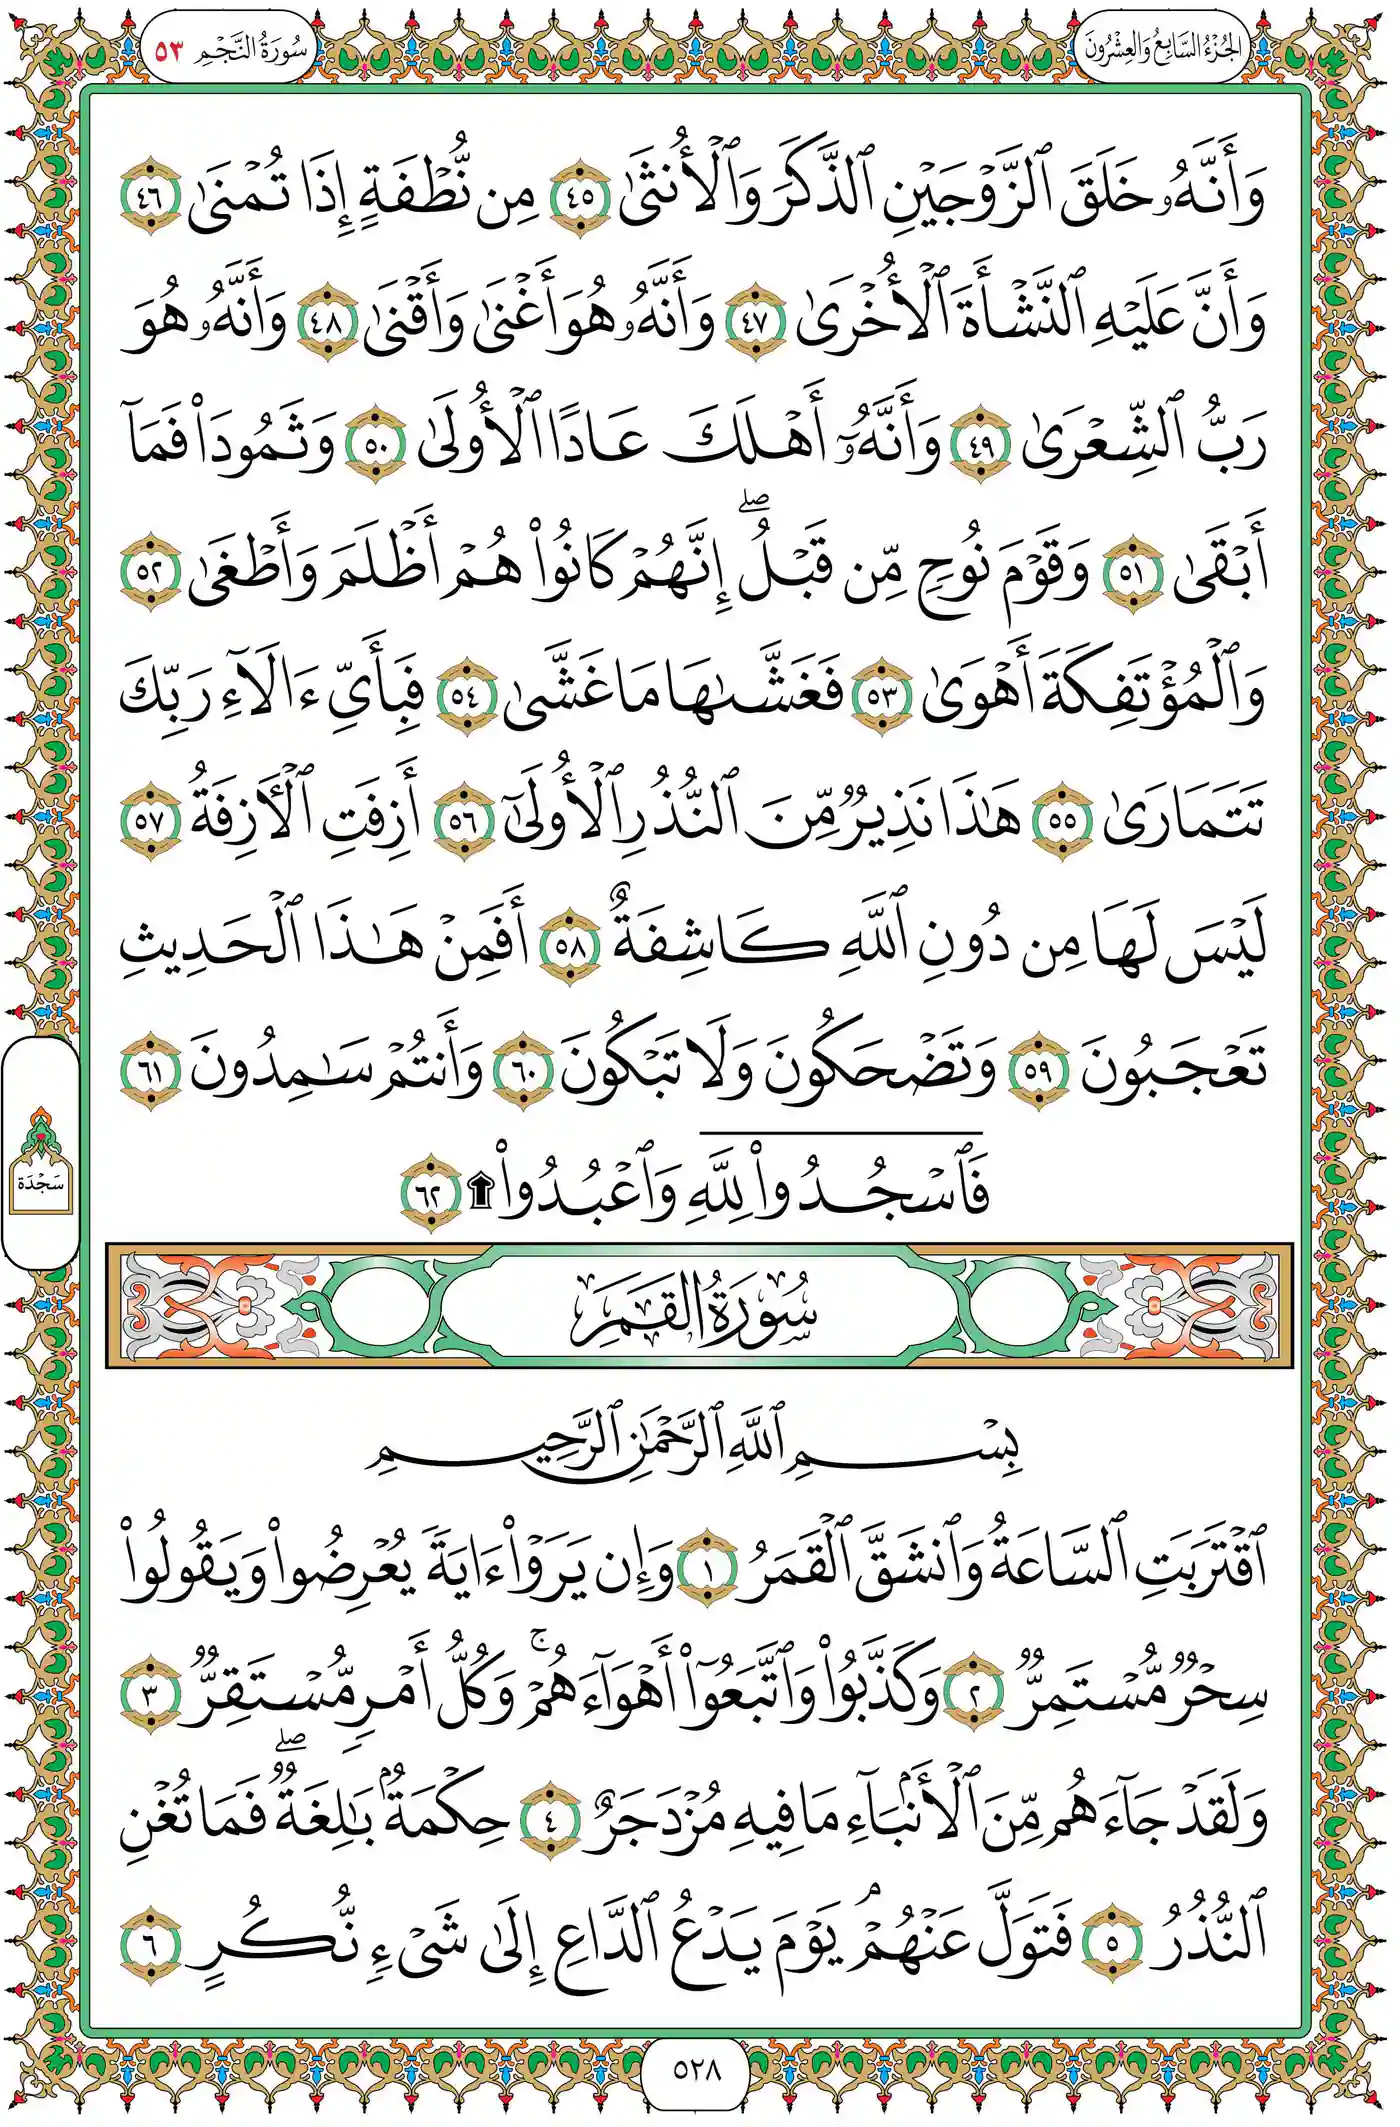 الجزء السابع والعشرون
سورة النجم ٥٣
وَأَنَّهُۥ خَلَقَ ٱلزَّوْجَيْنِ ٱلذَّكَرَ وَٱلْأُنثَىٰ ٤٥ مِن نُّطْفَةٍ إِذَا تُمْنَىٰ ٤٦
وَأَنَّ عَلَيْهِ ٱلنَّشْأَةَ ٱلْأُخْرَىٰ ٤٧ وَأَنَّهُۥ هُوَ أَغْنَىٰ وَأَقْنَىٰ ٤٨ وَأَنَّهُۥ هُوَ
رَبُّ ٱلشِّعْرَىٰ ٤٩ وَأَنَّهُۥٓ أَهْلَكَ عَادًا ٱلْأُولَىٰ ٥٠ وَثَمُودَا۟ فَمَآ
أَبْقَىٰ ٥١ وَقَوْمَ نُوحٍ مِّن قَبْلُ ۖ إِنَّهُمْ كَانُوا۟ هُمْ أَظْلَمَ وَأَطْغَىٰ ٥٢
وَٱلْمُؤْتَفِكَةَ أَهْوَىٰ ٥٣ فَغَشَّىٰهَا مَا غَشَّىٰ ٥٤ فَبِأَىِّ ءَالَآءِ رَبِّكَ
تَتَمَارَىٰ ٥٥ هَٰذَا نَذِيرٌ مِّنَ ٱلنُّذُرِ ٱلْأُولَىٰٓ ٥٦ أَزِفَتِ ٱلْـَٔازِفَةُ ٥٧
لَيْسَ لَهَا مِن دُونِ ٱللَّهِ كَاشِفَةٌ ٥٨ أَفَمِنْ هَٰذَا ٱلْحَدِيثِ
تَعْجَبُونَ ٥٩ وَتَضْحَكُونَ وَلَا تَبْكُونَ ٦٠ وَأَنتُمْ سَٰمِدُونَ ٦١
فَٱسْجُدُوا۟ لِلَّهِ وَٱعْبُدُوا۟ ۩ ٦٢
سجدة
سورة القمر
بِسْمِ ٱللَّهِ ٱلرَّحْمَٰنِ ٱلرَّحِيمِ
ٱقْتَرَبَتِ ٱلسَّاعَةُ وَٱنشَقَّ ٱلْقَمَرُ ١ وَإِن يَرَوْا۟ ءَايَةً يُعْرِضُوا۟ وَيَقُولُوا۟
سِحْرٌ مُّسْتَمِرٌّ ٢ وَكَذَّبُوا۟ وَٱتَّبَعُوٓا۟ أَهْوَآءَهُمْ ۚ وَكُلُّ أَمْرٍ مُّسْتَقِرٌّ ٣
وَلَقَدْ جَآءَهُم مِّنَ ٱلْأَنۢبَآءِ مَا فِيهِ مُزْدَجَرٌ ٤ حِكْمَةٌۢ بَٰلِغَةٌ ۖ فَمَا تُغْنِ
ٱلنُّذُرُ ٥ فَتَوَلَّ عَنْهُمْ ۘ يَوْمَ يَدْعُ ٱلدَّاعِ إِلَىٰ شَىْءٍ نُّكُرٍ ٦
٥٢٨